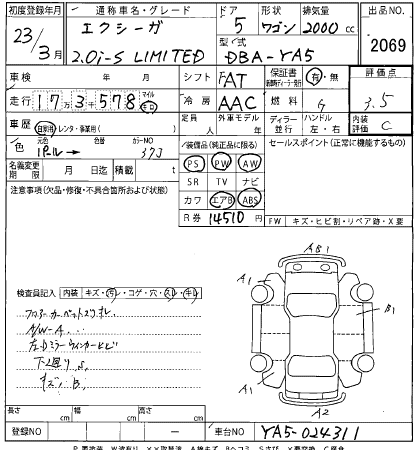 初度登録年月 通称車名・グレード ドア 形状 排気量 出品NO.
23/3月 エクシーガ 2.0i-S LIMITED 5 ワゴン 2000cc 2069
型/式 DBA-YA5
車検 年 月 シフト FAT 保証書 有・無 評価点
走行 17万3千578 マイル 冷房 AAC 燃料 G 3.5
車歴 自家用・レンタ・事業用( ) 定員 人 外車モデル ディーラー・並行 ハンドル 左・右 内装評価 C
色 元色 パール→ 色替 カラーNO 37J 装備品(純正品に限る) セールスポイント(正常に機能するもの)
PS PW AW
名義変更期限 月 日迄 積載 t SR TV ナビ
注意事項(欠品・修復・不具合箇所および状態) カワ エアB ABS
R券 14510 FW キズ・ヒビ割・リペア跡・X要
AB1
A1 A1
B1
検査員記入 内装 キズ・汚レ・コゲ・穴・スレ・キレ
フロアーカーペットスリキレ
A/W-A
左Dミラーウィンカーヒビ
下廻りS
キズ B
A1
A2
長さ cm 幅 cm 高さ cm
登録NO 車台NO YA5-024311